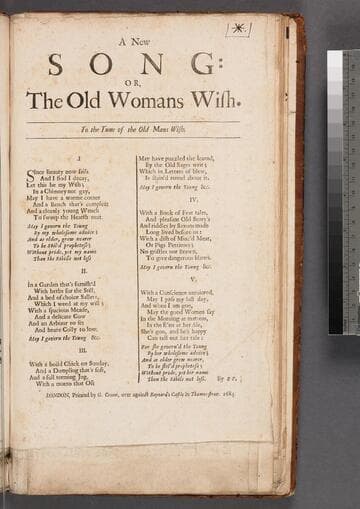 [*.]
A New
SONG:
OR,
The Old Womans Wish.
To the Tune of the Old Mans Wish.
I
Since Beauty now fails
And I find I decay,
Let this be my Wish;
In a Chimney gay,
May I have a warme corner
And a Bench that's compleat
And a cleanly young Wench
To sweep the Hearth neat.
May I govern the Young
By my wholesome advice;
And as older, grow nearer
To be stil'd prophetess;
Without pride, yet my name
Than the Sibils not less
II.
In a Garden that's furnish'd
With herbs for the Still,
And a bed of choice Sallet,
Which I weed at my will;
With a spacious Meade,
And a delicate Cow
And an Arbour to sit
And heare Colly to low.
May I govern the Young &c.
III.
With a boil'd Chick on Sunday,
And a Dumpling that's soft,
And a full teeming Jug,
With a motto that Oft
May have puzzled the learnd,
By the Old Sages writ;
Which in Letters of blew,
Is round about it.
May I govern the Young &c.
IV.
With a Book of Feat tales,
And pleasant Old Story's
And riddles by
Long lived before us:
With a dish of Minc'd Meat,
Or Pigs Pettitoes;
No gristles nor Brawn,
To give dangerous blows.
May I govern the Young &c.
V.
With a Conscience
May I pass my last day,
And when I am gon,
May the good Women say
In the Morning at
In the at her Ale,
She's gon, and he's happy
Can tell out her tale:
For she govern'd the Young
By her wholesome advice;
And as older grew nearer,
To be stil'd prophetess;
Without pride, yet her name
Than the Sibils not less. By
LONDON, Printed by G. Croom, over against Baynard's Castle in Thames-street. 1685.